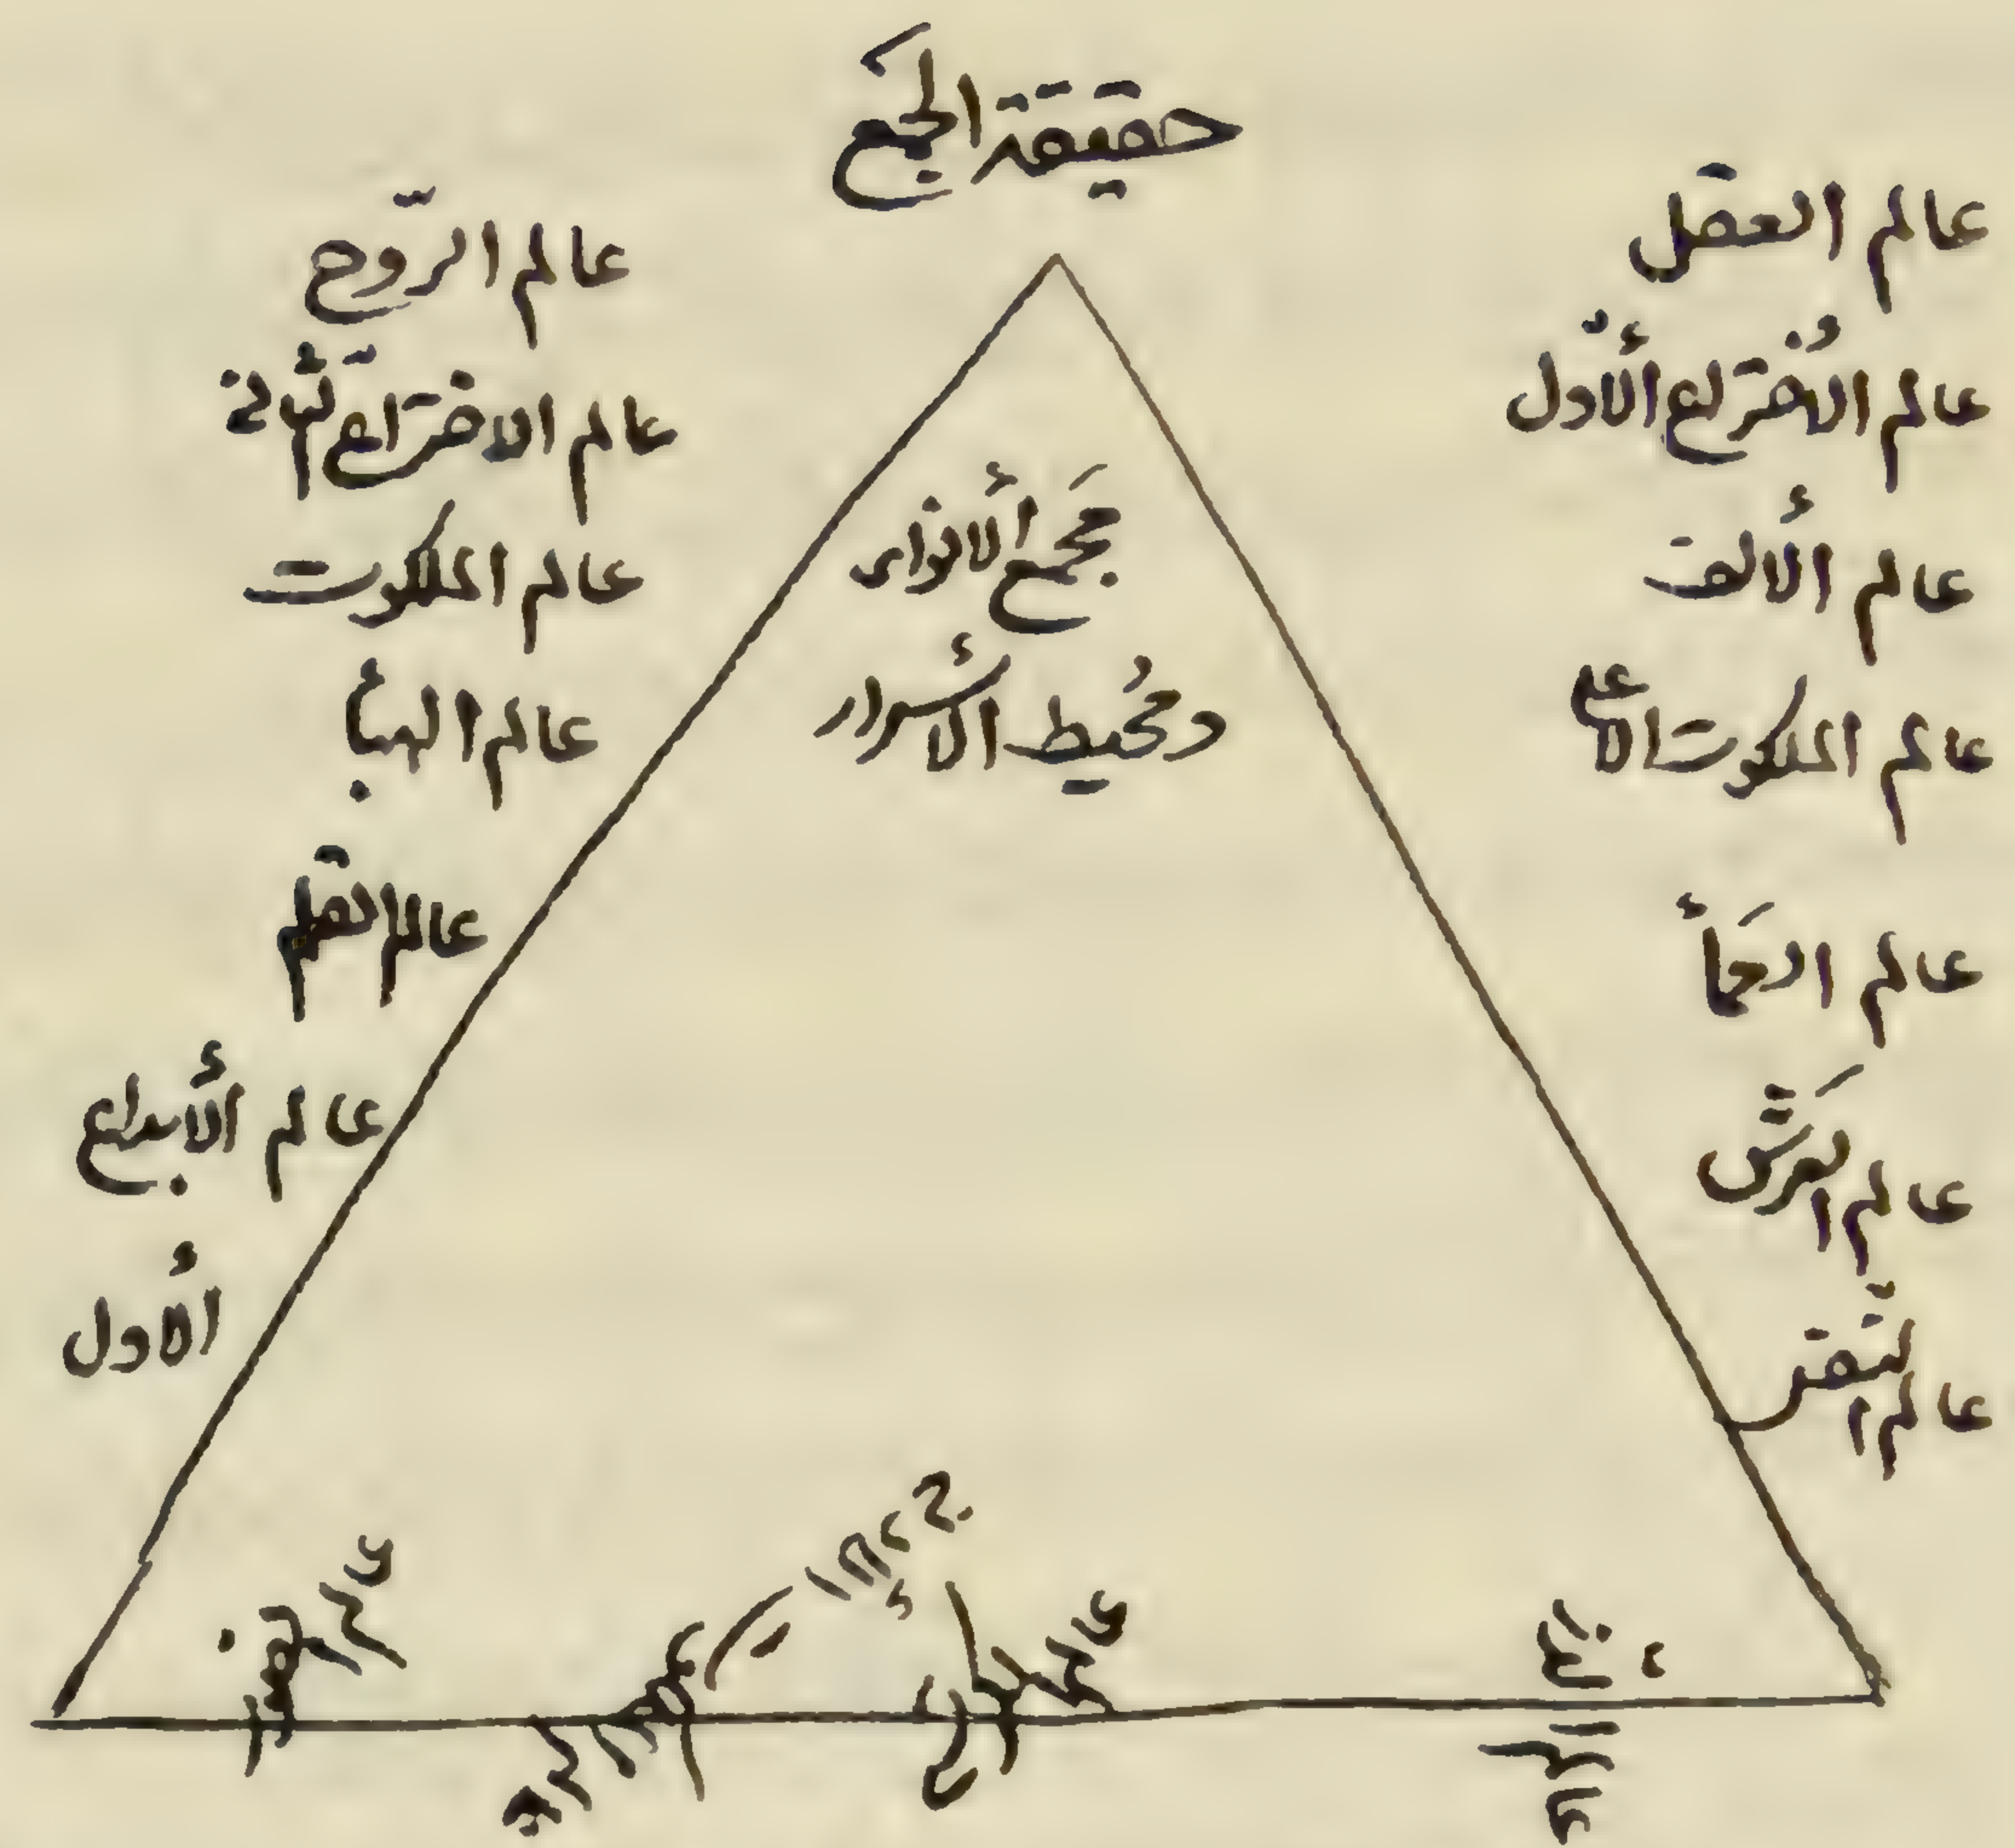 حقيقة الجمع
عالم العقل
عالم الاختراع الأول
عالم الألف
عالم الملكوت الأعلى
عالم العمأ
عالم العرش
عالم
مَجمع الأنوار
ومُحيط الأسرار
عالم الرّوح
عالم الاختراع الثاني
عالم الملكوت
عالم الهبأ
عالم القلم
عالم الأبداع
الأول
عالم
عالم
عالم